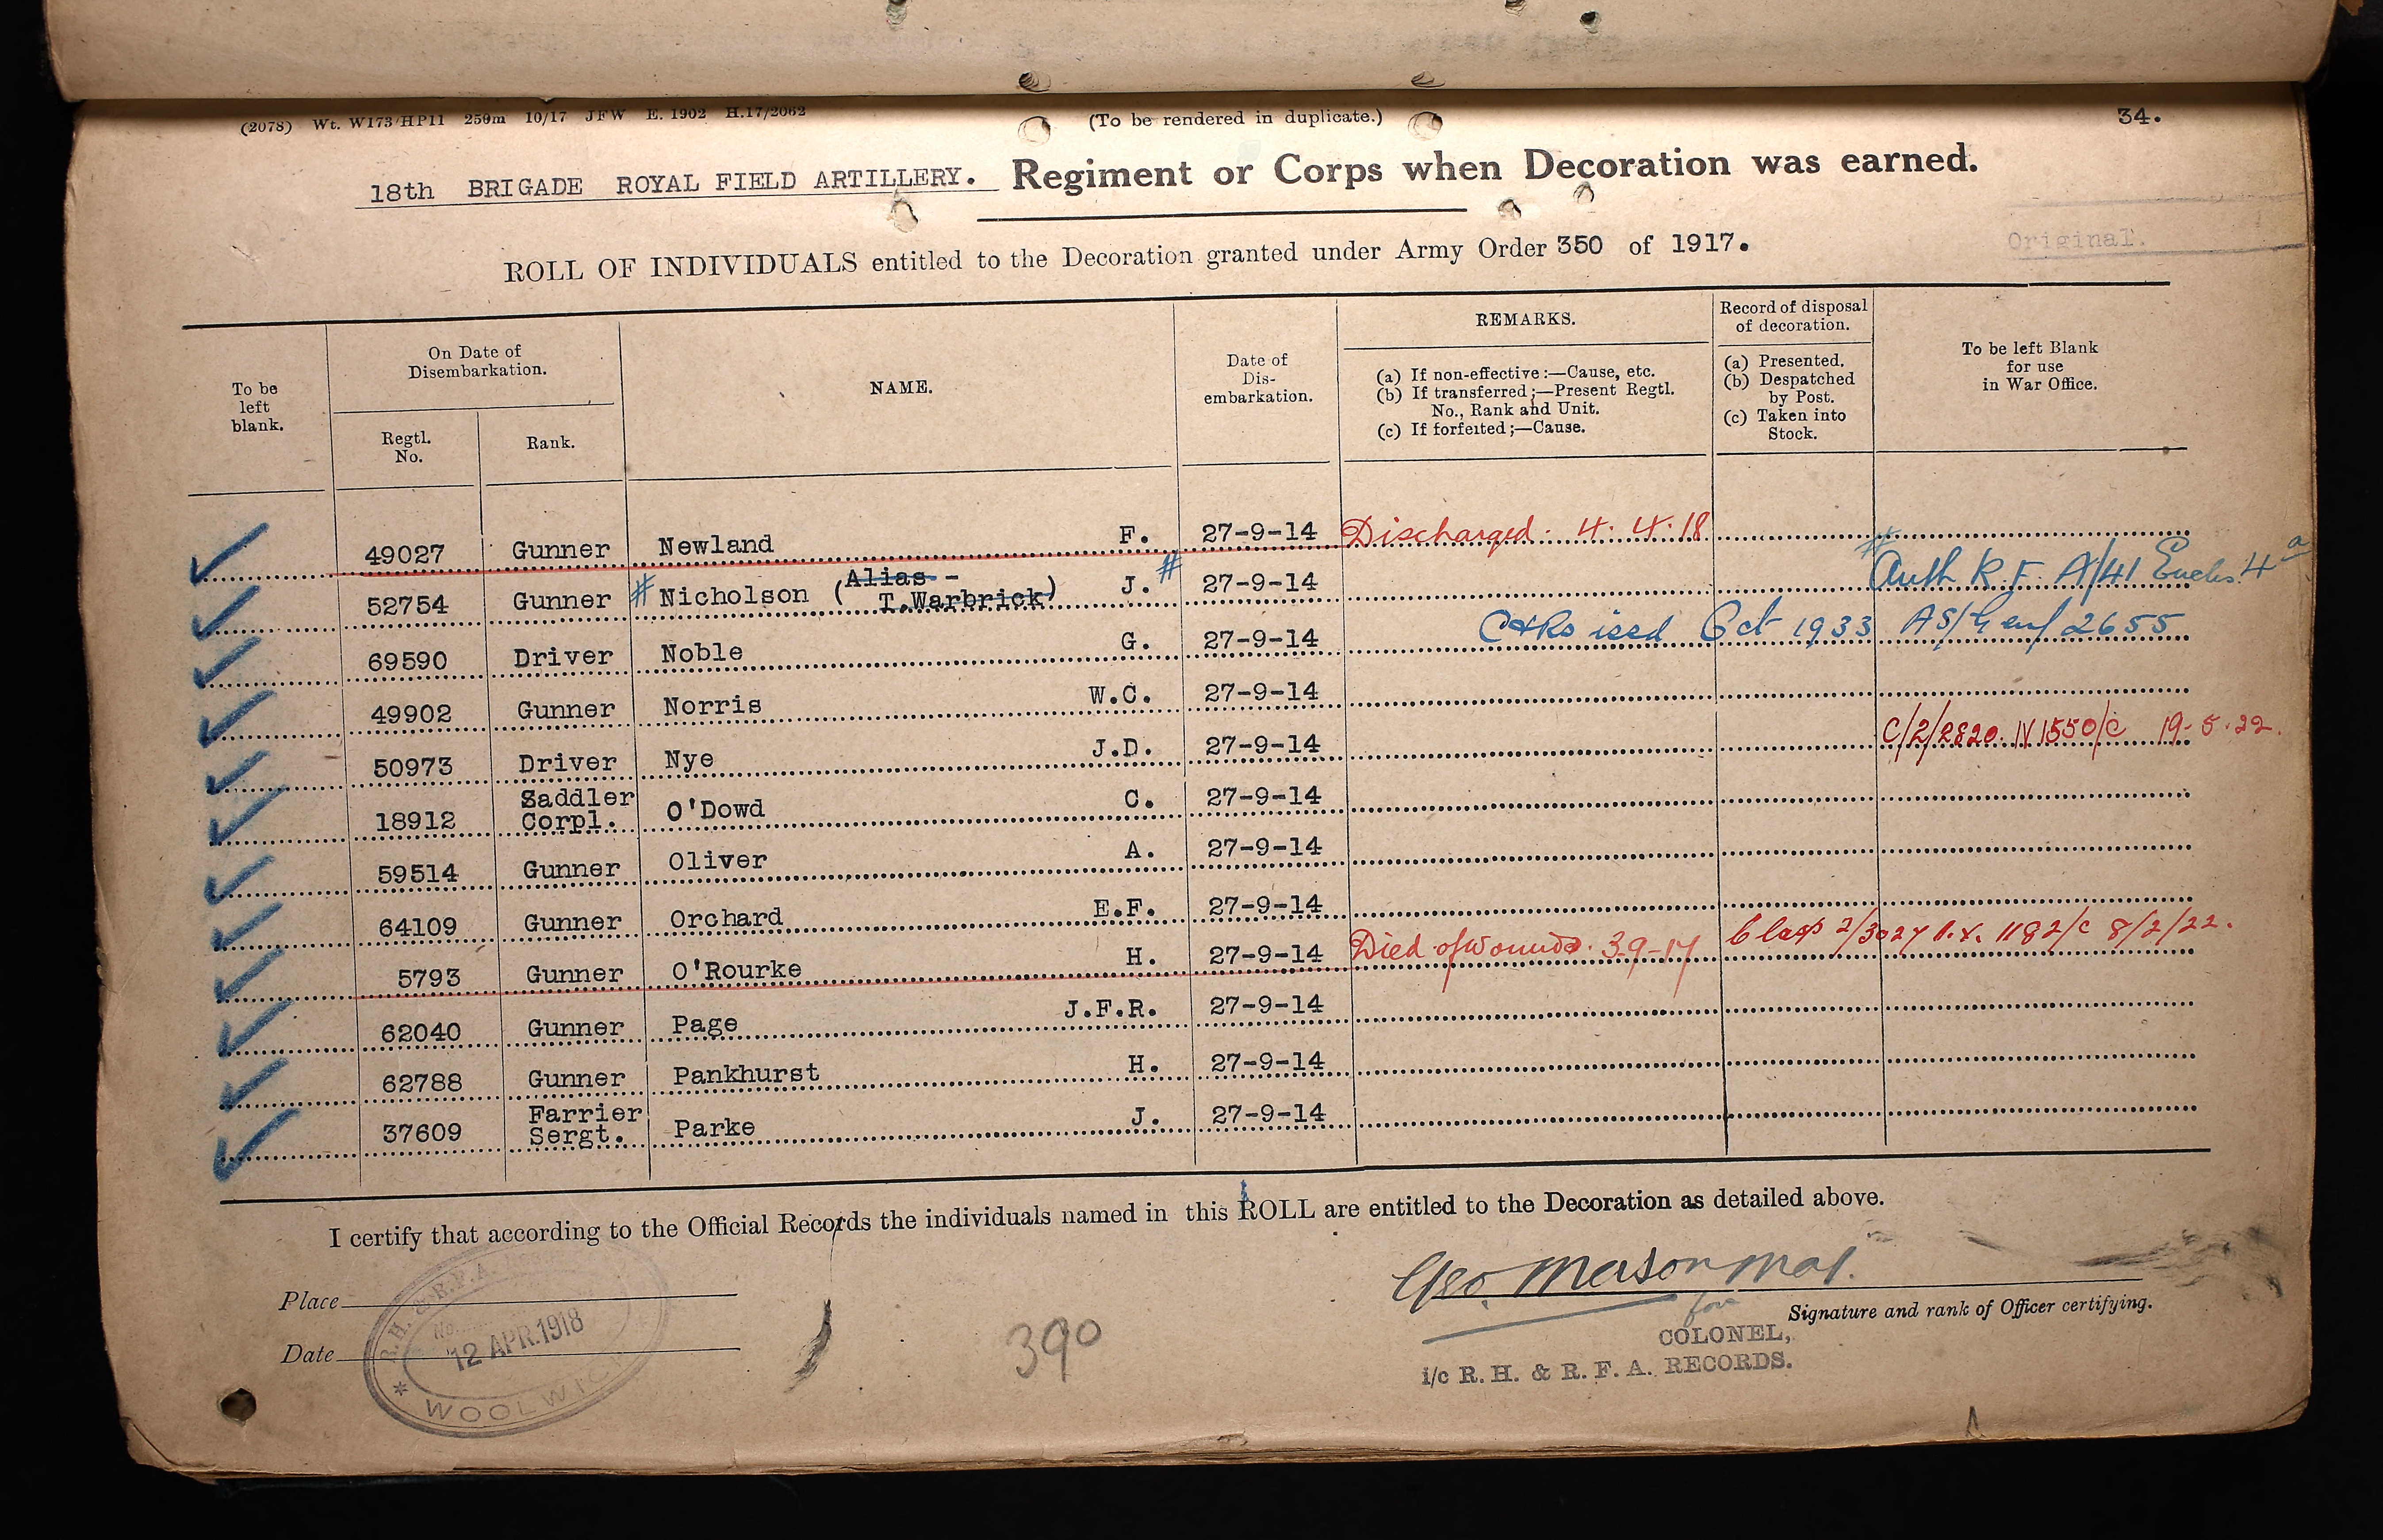 (2078) Wt. W173/HP11 250m 10/17 JFW E. 1902 H.17/2062 (To be rendered in duplicate.) 34.
18th BRIGADE ROYAL FIELD ARTILLERY. Regiment or Corps when Decoration was earned.
Original.
ROLL OF INDIVIDUALS entitled to the Decoration granted under Army Order 350 of 1917.
To be left blank.
On Date of Disembarkation.
Regtl. No.
Rank.
NAME.
Date of Dis-embarkation.
REMARKS.
(a) If non-effective:—Cause, etc.
(b) If transferred;—Present Regtl. No., Rank and Unit.
(c) If forfeited;—Cause.
Record of disposal of decoration.
(a) Presented.
(b) Despatched by Post.
(c) Taken into Stock.
To be left Blank for use in War Office.
49027 Gunner Newland F. 27-9-14 Discharged. 4.4.18
52754 Gunner # Nicholson (Alias - T.Warbrick) J. # 27-9-14 # Auth R.F. A/41 Encls. 4a
69590 Driver Noble G. 27-9-14 issd Oct 1933 2655
49902 Gunner Norris W.C. 27-9-14
50973 Driver Nye J.D. 27-9-14 C/2/2820. IV 1550/C 19-5-22.
18912 Saddler Corpl. O'Dowd C. 27-9-14
59514 Gunner Oliver A. 27-9-14
64109 Gunner Orchard E.F. 27-9-14
5793 Gunner O'Rourke H. 27-9-14 Died of Wounds. 3-9-17 Clasp 1182/C 8/2/22.
62040 Gunner Page J.F.R. 27-9-14
62788 Gunner Pankhurst H. 27-9-14
37609 Farrier Sergt. Parke J. 27-9-14
I certify that according to the Official Records the individuals named in this ROLL are entitled to the Decoration as detailed above.
Geo. Mason Maj.
for
Place
Signature and rank of Officer certifying.
R.H. & R.F.A.
No.
12 APR.1918
WOOLWICH
Date
390
COLONEL,
i/c R. H. & R. F. A. RECORDS.